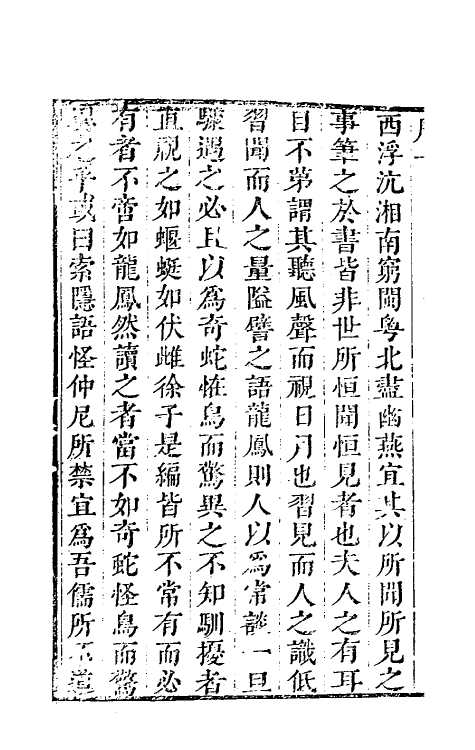 西浮沅湘南窮閩粤北盡幽燕宜其以所聞所見之
事筆之於書皆非世所恒聞恒見者也夫人之有耳
目不第謂其聽風聲而視日月也習見而人之識低
習聞而人之量隘譬之語龍鳳則人以爲常談一旦
驟遇之必且以爲奇蛇怪鳥而驚異之不知馴擾者
直視之如蝘蜓如伏雌徐子是編皆所不常有而必
有者不啻如龍鳳然讀之者當不如奇蛇怪鳥而驚
異之乎或曰索隱語怪仲尼所禁宜爲吾儒所不道